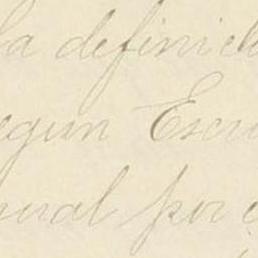 la definici
egun Escri
ural por